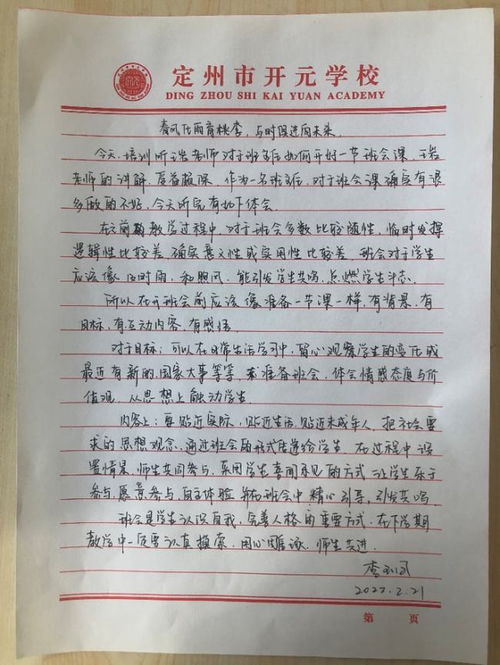 定州市开元学校
DING ZHOU SHI KAI YUAN ACADEMY
春风化雨育桃李，与时俱进向未来
今天培训听 老师对于班主任如何开好一节班会课，
老师的讲解，受益匪浅，作为一名班主任，对于班会课确实有很
多做的不好，今天听完有如下体会
在之前教学过程中，对于班会多数比较随性，临时发挥
逻辑性比较差，确实意义性或实用性比较差，班会对于学生
应该像及时雨，和煦风，能引发学生共鸣，点燃学生斗志．
所以在开班会前应该像准备一节课一样，有背景，有
目标，有互动内容，有感悟
对于目标：可以在日常生活学习中，留心观察学生的变化或
最近有新的国家大事等等，来准备班会，体会情感态度与价
值观，从思想上触动学生
内容上：要贴近实际，贴近生活，贴近未成年人，把社会要
求的思想观念，通过班会的形式传递给学生，在过程中设
置情景，师生共同参与，采用学生喜闻乐见的方式，让学生乐于
参与，愿意参与，自主体验，并在班会中精心引导，引发共鸣
班会是学生认识自我，完善人格的重要方式，在下学期
教学中一定要认真探索，用心雕琢，师生共进．
李
2022.2.21
第 页